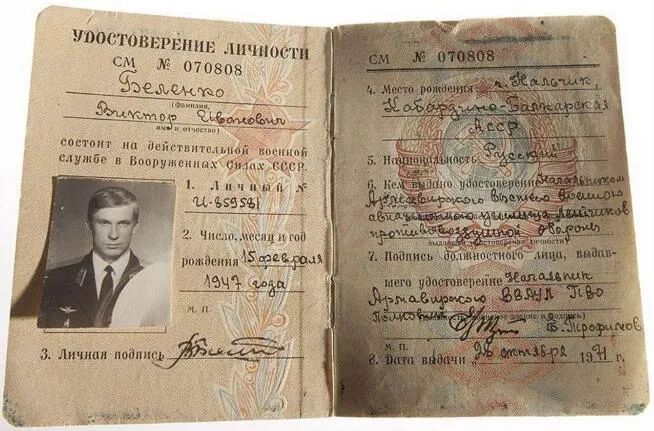 УДОСТОВЕРЕНИЕ ЛИЧНОСТИ
СМ № 070808
Беленко
(фамилия,
Виктор Иванович
имя и отчество)
состоит на действительной военной
службе в Вооруженных Силах СССР.
1. Личный №
И-859581
2. Число, месяц и год
рождения 15 февраля
1947 года
М. П.
3. Личная подпись
СМ № 070808
4. Место рождения г. Нальчик,
Кабардино-Балкарская
АССР
5. Национальность Русский
6. Кем выдано удостоверение Начальником
Армавирского высшего военного
авиационного училища летчиков
противовоздушной обороны
7. Подпись должностного лица, выдав-
шего удостоверение Начальник
Армавирского ВВАУЛ ПВО
Полковник Е. Трофимов
М. П.
8. Дата выдачи 28 октября 1971 г.